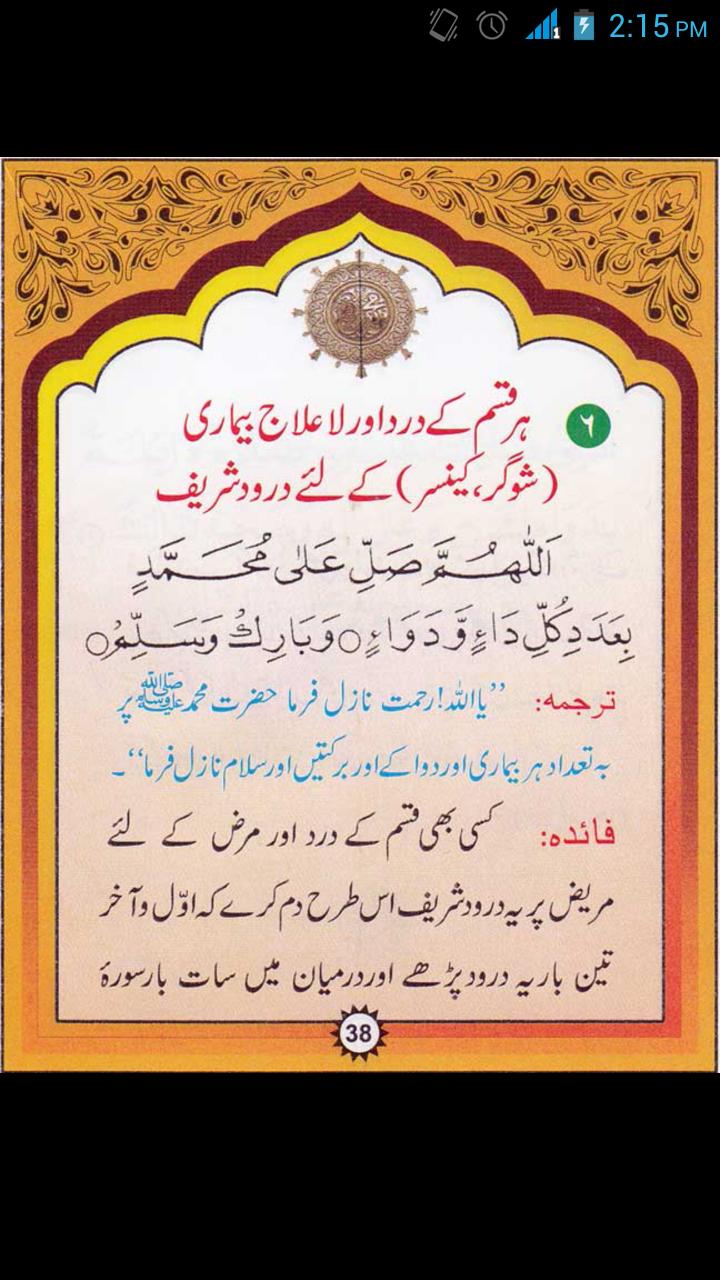 2:15 PM
۶ ہر قسم کے درد اور لا علاج بیماری
(شوگر، کینسر) کے لئے درود شریف
اَللّٰهُمَّ صَلِّ عَلٰى مُحَمَّدٍ
بِعَدَدِ كُلِّ دَاءٍ وَّدَوَاءٍ○ وَبَارِكْ وَسَلِّمْ○
ترجمہ: ”یا اللہ! رحمت نازل فرما حضرت محمد ﷺ پر
بہ تعداد ہر بیماری اور دوا کے اور برکتیں اور سلام نازل فرما“۔
فائدہ: کسی بھی قسم کے درد اور مرض کے لئے
مریض پر یہ درود شریف اس طرح دم کرے کہ اوّل و آخر
تین بار یہ درود پڑھے اور درمیان میں سات بار سورۂ
38